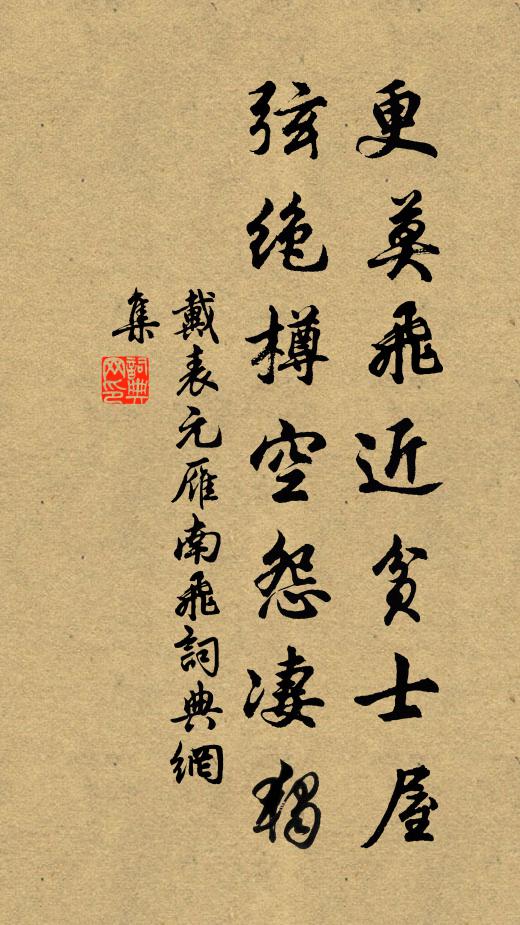 更莫飛近貧士屋
弦絶樽空怨凄独
戴表元雁南飛詞典網
集
詞典
网印